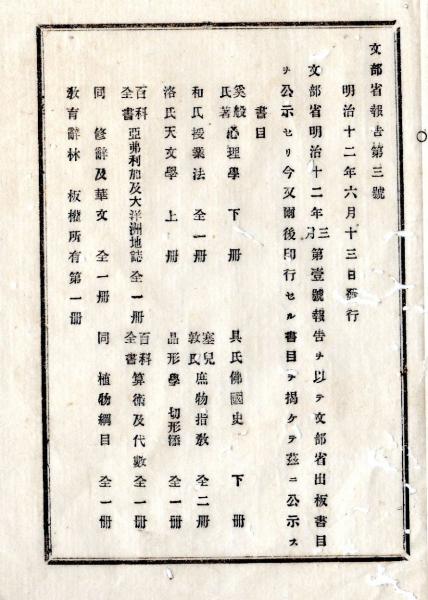 文部省報吿第三號
明治十二年六月十三日發行
文部省明治十二年三月第壹號報吿ヲ以テ文部省出板書目
ヲ公示セリ今又爾後印行セル書目ヲ揭ケテ茲ニ公示ス
書目
奚般氏著心理學 下 冊 具氏佛國史 下 冊
和氏授業法 全一冊 塞兒敦氏庶物指敎 全二冊
洛氏天文學 上 冊 晶形學 切形添 全一冊
百科全書亞弗利加及大洋洲地誌 全一冊 百科全書算術及代數 全一冊
同 修辭及華文 全一冊 同 植物綱目 全一冊
敎育辭林 板權所有第一冊